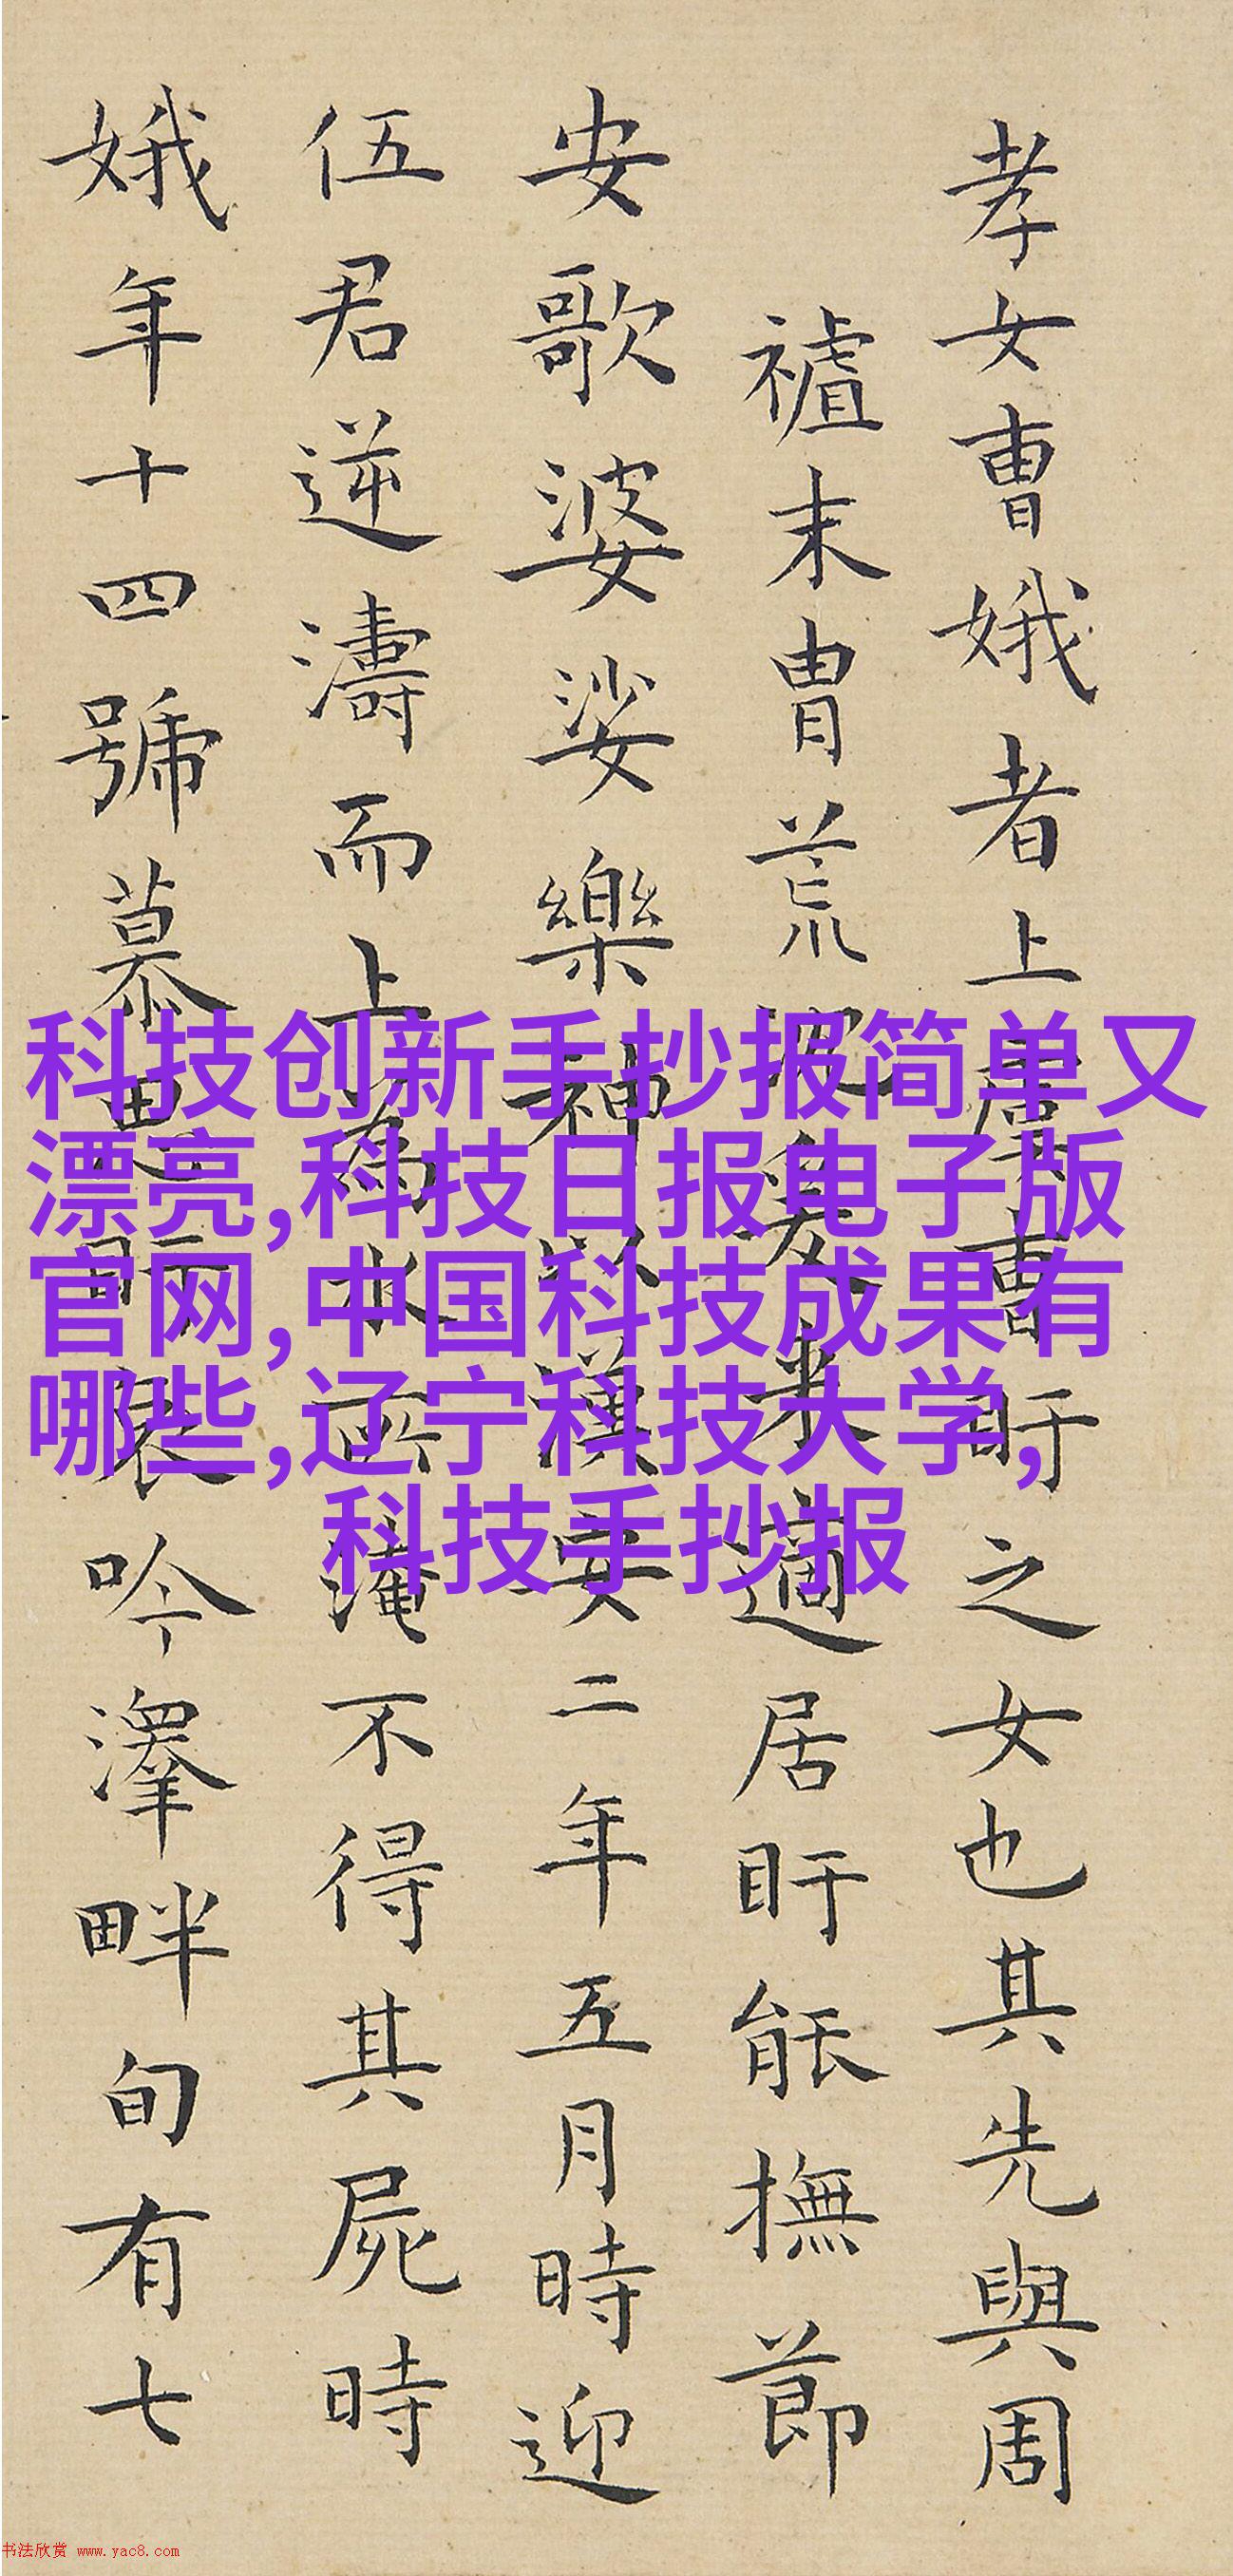 孝女曹娥者上虞曹盱之女也其先與周
末胄荒沉爰来適居盱能撫節
安歌婆娑樂神以漢安二年五月時迎
伍君逆濤而上為水所淹不得其屍時
娥年十四號慕思盱哀吟澤畔旬有七
科技创新手抄报简单又
漂亮,科技日报电子版
官网,中国科技成果有
哪些,辽宁科技大学,
科技手抄报
书法欣赏 www.yac8.com